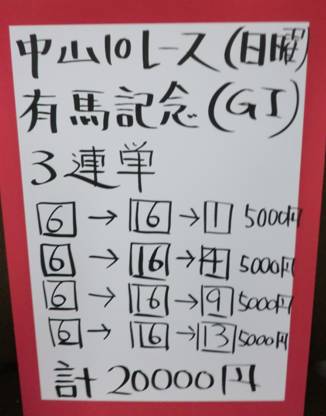 中山10レース(日曜)
有馬記念(GI)
3連単
6→16→1 5000円
6→16→4 5000円
6→16→9 5000円
6→16→13 5000円
計20000円